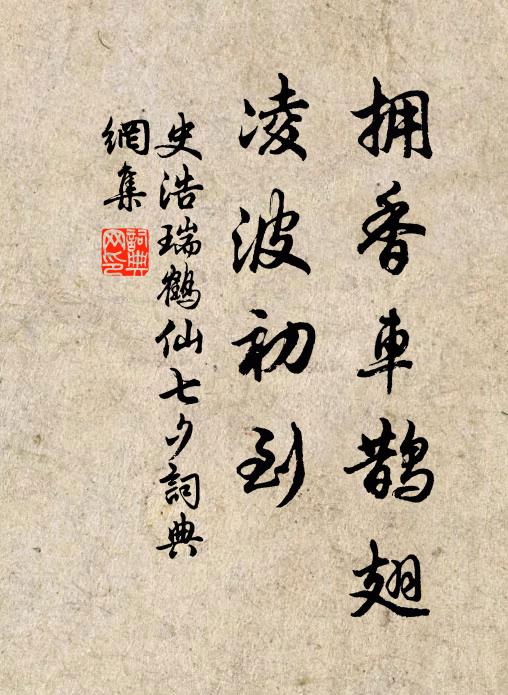 拥香車鹊翅
凌波初到
史浩瑞鶴仙七夕詞典
網集
詞典網印